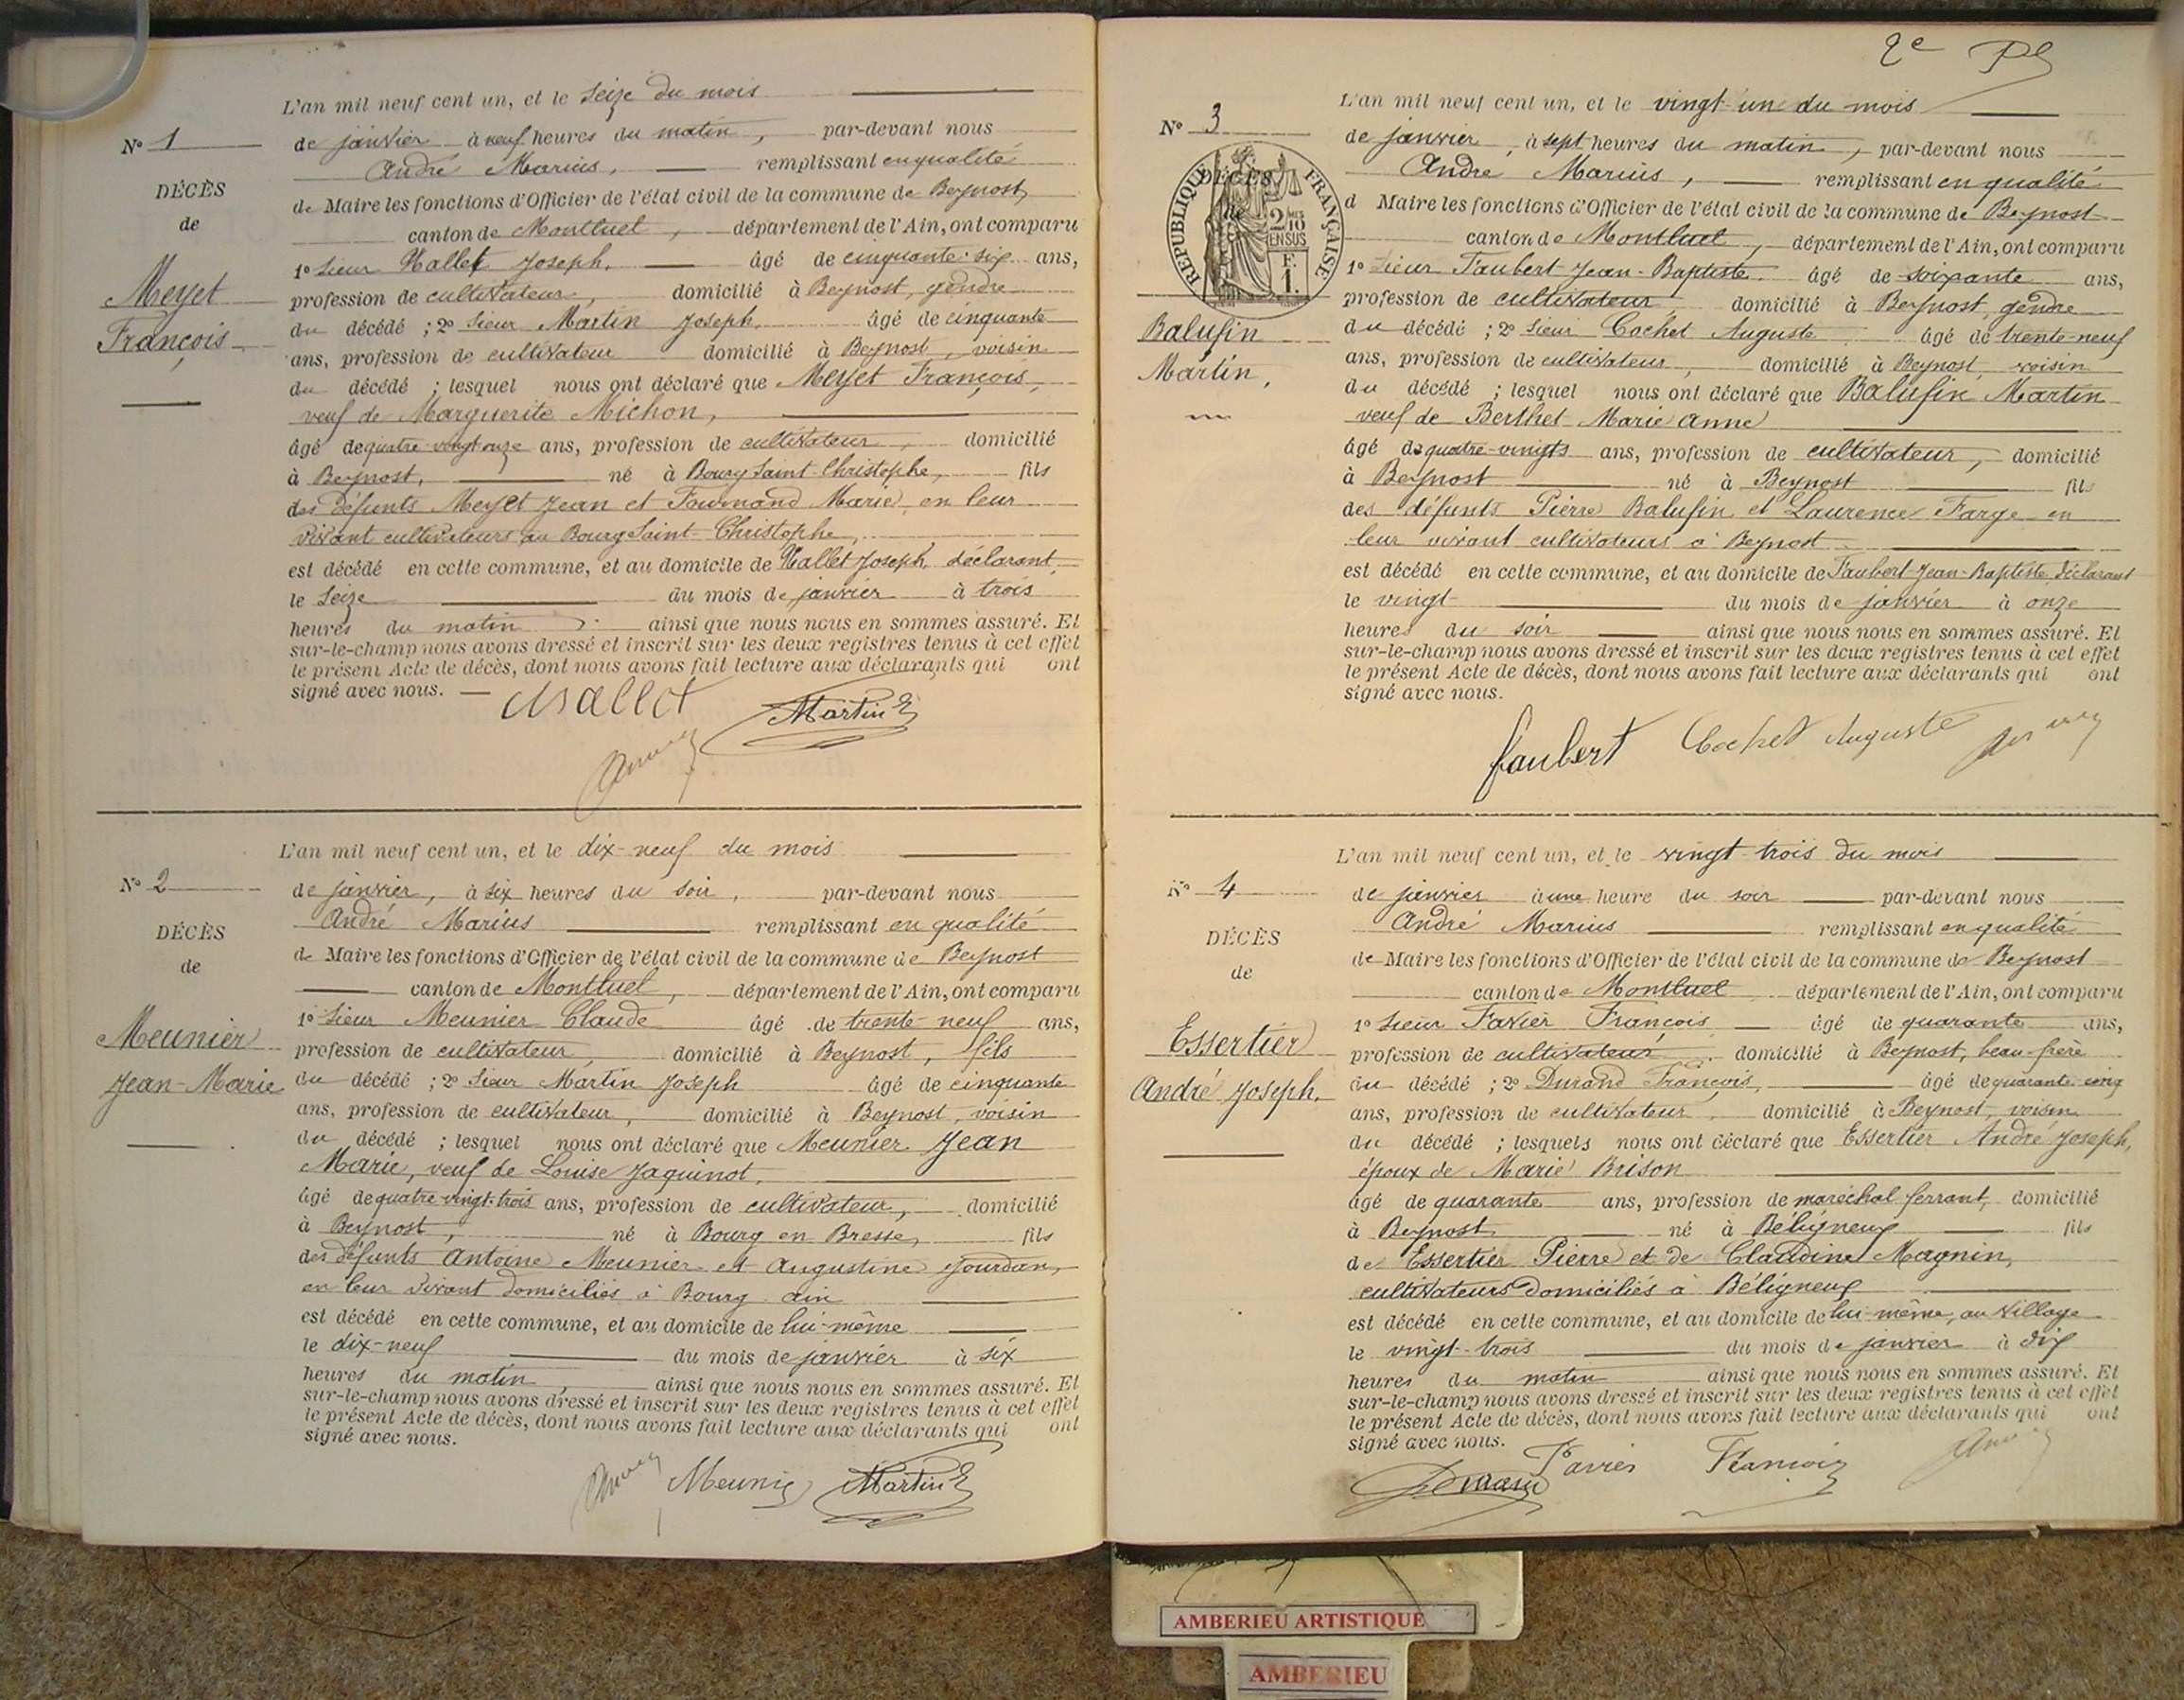 L'an mil neuf cent un, et le seize du mois
N° 1
de janvier à neuf heures du matin, par-devant nous
André Marius, remplissant en qualité
DÉCÈS
de Maire les fonctions d'Officier de l'état civil de la commune de Beynost,
de
canton de Montluel, département de l'Ain, ont comparu
1° Sieur Hallet Joseph, âgé de cinquante-six ans,
Meyet
profession de cultivateur, domicilié à Beynost, gendre
du décédé ; 2° Sieur Martin Joseph, âgé de cinquante
François
ans, profession de cultivateur domicilié à Beynost, voisin
du décédé ; lesquel nous ont déclaré que Meyet François,
veuf de Marguerite Michon,
âgé de quatre-vingt-onze ans, profession de cultivateur, domicilié
à Beynost, né à Bourg Saint-Christophe, fils
des défunts Meyet Jean et Marie, en leur
vivant cultivateurs au Bourg Saint-Christophe,
est décédé en cette commune, et au domicile de Hallet Joseph, déclarant,
le seize du mois de janvier à trois
heures du matin ainsi que nous nous en sommes assuré. Et
sur-le-champ nous avons dressé et inscrit sur les deux registres tenus à cet effet
le présent Acte de décès, dont nous avons fait lecture aux déclarants qui ont
signé avec nous.
Martin
L'an mil neuf cent un, et le dix-neuf du mois
N° 2
de janvier, à six heures du soir, par-devant nous
André Marius remplissant en qualité
DÉCÈS
de Maire les fonctions d'Officier de l'état civil de la commune de Beynost
de
canton de Montluel, département de l'Ain, ont comparu
1° Sieur Meunier Claude âgé de trente-neuf ans,
Meunier
profession de cultivateur, domicilié à Beynost, fils
Jean-Marie
du décédé ; 2° Sieur Martin Joseph âgé de cinquante
ans, profession de cultivateur, domicilié à Beynost, voisin
du décédé ; lesquel nous ont déclaré que Meunier Jean
Marie, veuf de Louise Jaquinot,
âgé de quatre-vingt-trois ans, profession de cultivateur, domicilié
à Beynost, né à Bourg en Bresse, fils
des défunts Antoine Meunier et Augustine Jourdan,
en leur vivant domiciliés à Bourg Ain
est décédé en cette commune, et au domicile de lui-même
le dix-neuf du mois de janvier à six
heures du matin, ainsi que nous nous en sommes assuré. Et
sur-le-champ nous avons dressé et inscrit sur les deux registres tenus à cet effet
le présent Acte de décès, dont nous avons fait lecture aux déclarants qui ont
signé avec nous.
Meunier Martin
2e
L'an mil neuf cent un, et le vingt un du mois
N° 3
de janvier, à sept heures du matin, par-devant nous
André Marius, remplissant en qualité
DÉCÈS
de
RÉPUBLIQUE FRANÇAISE
2/10 EN SUS
F. 1.
d Maire les fonctions d'Officier de l'état civil de la commune de Beynost
canton de Montluel, département de l'Ain, ont comparu
1° Sieur Faubert Jean-Baptiste âgé de soixante ans,
profession de cultivateur domicilié à Beynost, gendre
Balufin
du décédé ; 2° Sieur Cochet Auguste âgé de trente-neuf
ans, profession de cultivateur, domicilié à Beynost, voisin
Martin,
du décédé ; lesquel nous ont déclaré que Balufin Martin
veuf de Berthet Marie Anne
âgé de quatre-vingts ans, profession de cultivateur, domicilié
à Beynost né à Beynost fils
des défunts Pierre Balufin et Laurence Farge en
leur vivant cultivateurs à Beynost
est décédé en cette commune, et au domicile de Faubert Jean-Baptiste, déclarant
le vingt du mois de janvier à onze
heures du soir ainsi que nous nous en sommes assuré. Et
sur-le-champ nous avons dressé et inscrit sur les deux registres tenus à cet effet
le présent Acte de décès, dont nous avons fait lecture aux déclarants qui ont
signé avec nous.
faubert Cochet Auguste
L'an mil neuf cent un, et le vingt-trois du mois
N° 4
de janvier à une heure du soir par-devant nous
André Marius remplissant en qualité
DÉCÈS
de Maire les fonctions d'Officier de l'état civil de la commune de Beynost
de
canton de Montluel département de l'Ain, ont comparu
1° Sieur Favier François âgé de quarante ans,
Essertier
profession de cultivateur domicilié à Beynost, beau-frère
André Joseph,
du décédé ; 2° Durand François, âgé de quarante-cinq
ans, profession de cultivateur, domicilié à Beynost, voisin
du décédé ; lesquels nous ont déclaré que Essertier André Joseph,
époux de Marie Brison
âgé de quarante ans, profession de maréchal ferrant, domicilié
à Beynost né à Béligneux fils
de Essertier Pierre et de Claudine Magnin,
cultivateurs domiciliés à Béligneux
est décédé en cette commune, et au domicile de lui-même, au village
le vingt-trois du mois de janvier à dix
heures du matin ainsi que nous nous en sommes assuré. Et
sur-le-champ nous avons dressé et inscrit sur les deux registres tenus à cet effet
le présent Acte de décès, dont nous avons fait lecture aux déclarants qui ont
signé avec nous.
Durand Favier François
AMBERIEU ARTISTIQUE
AMBERIEU